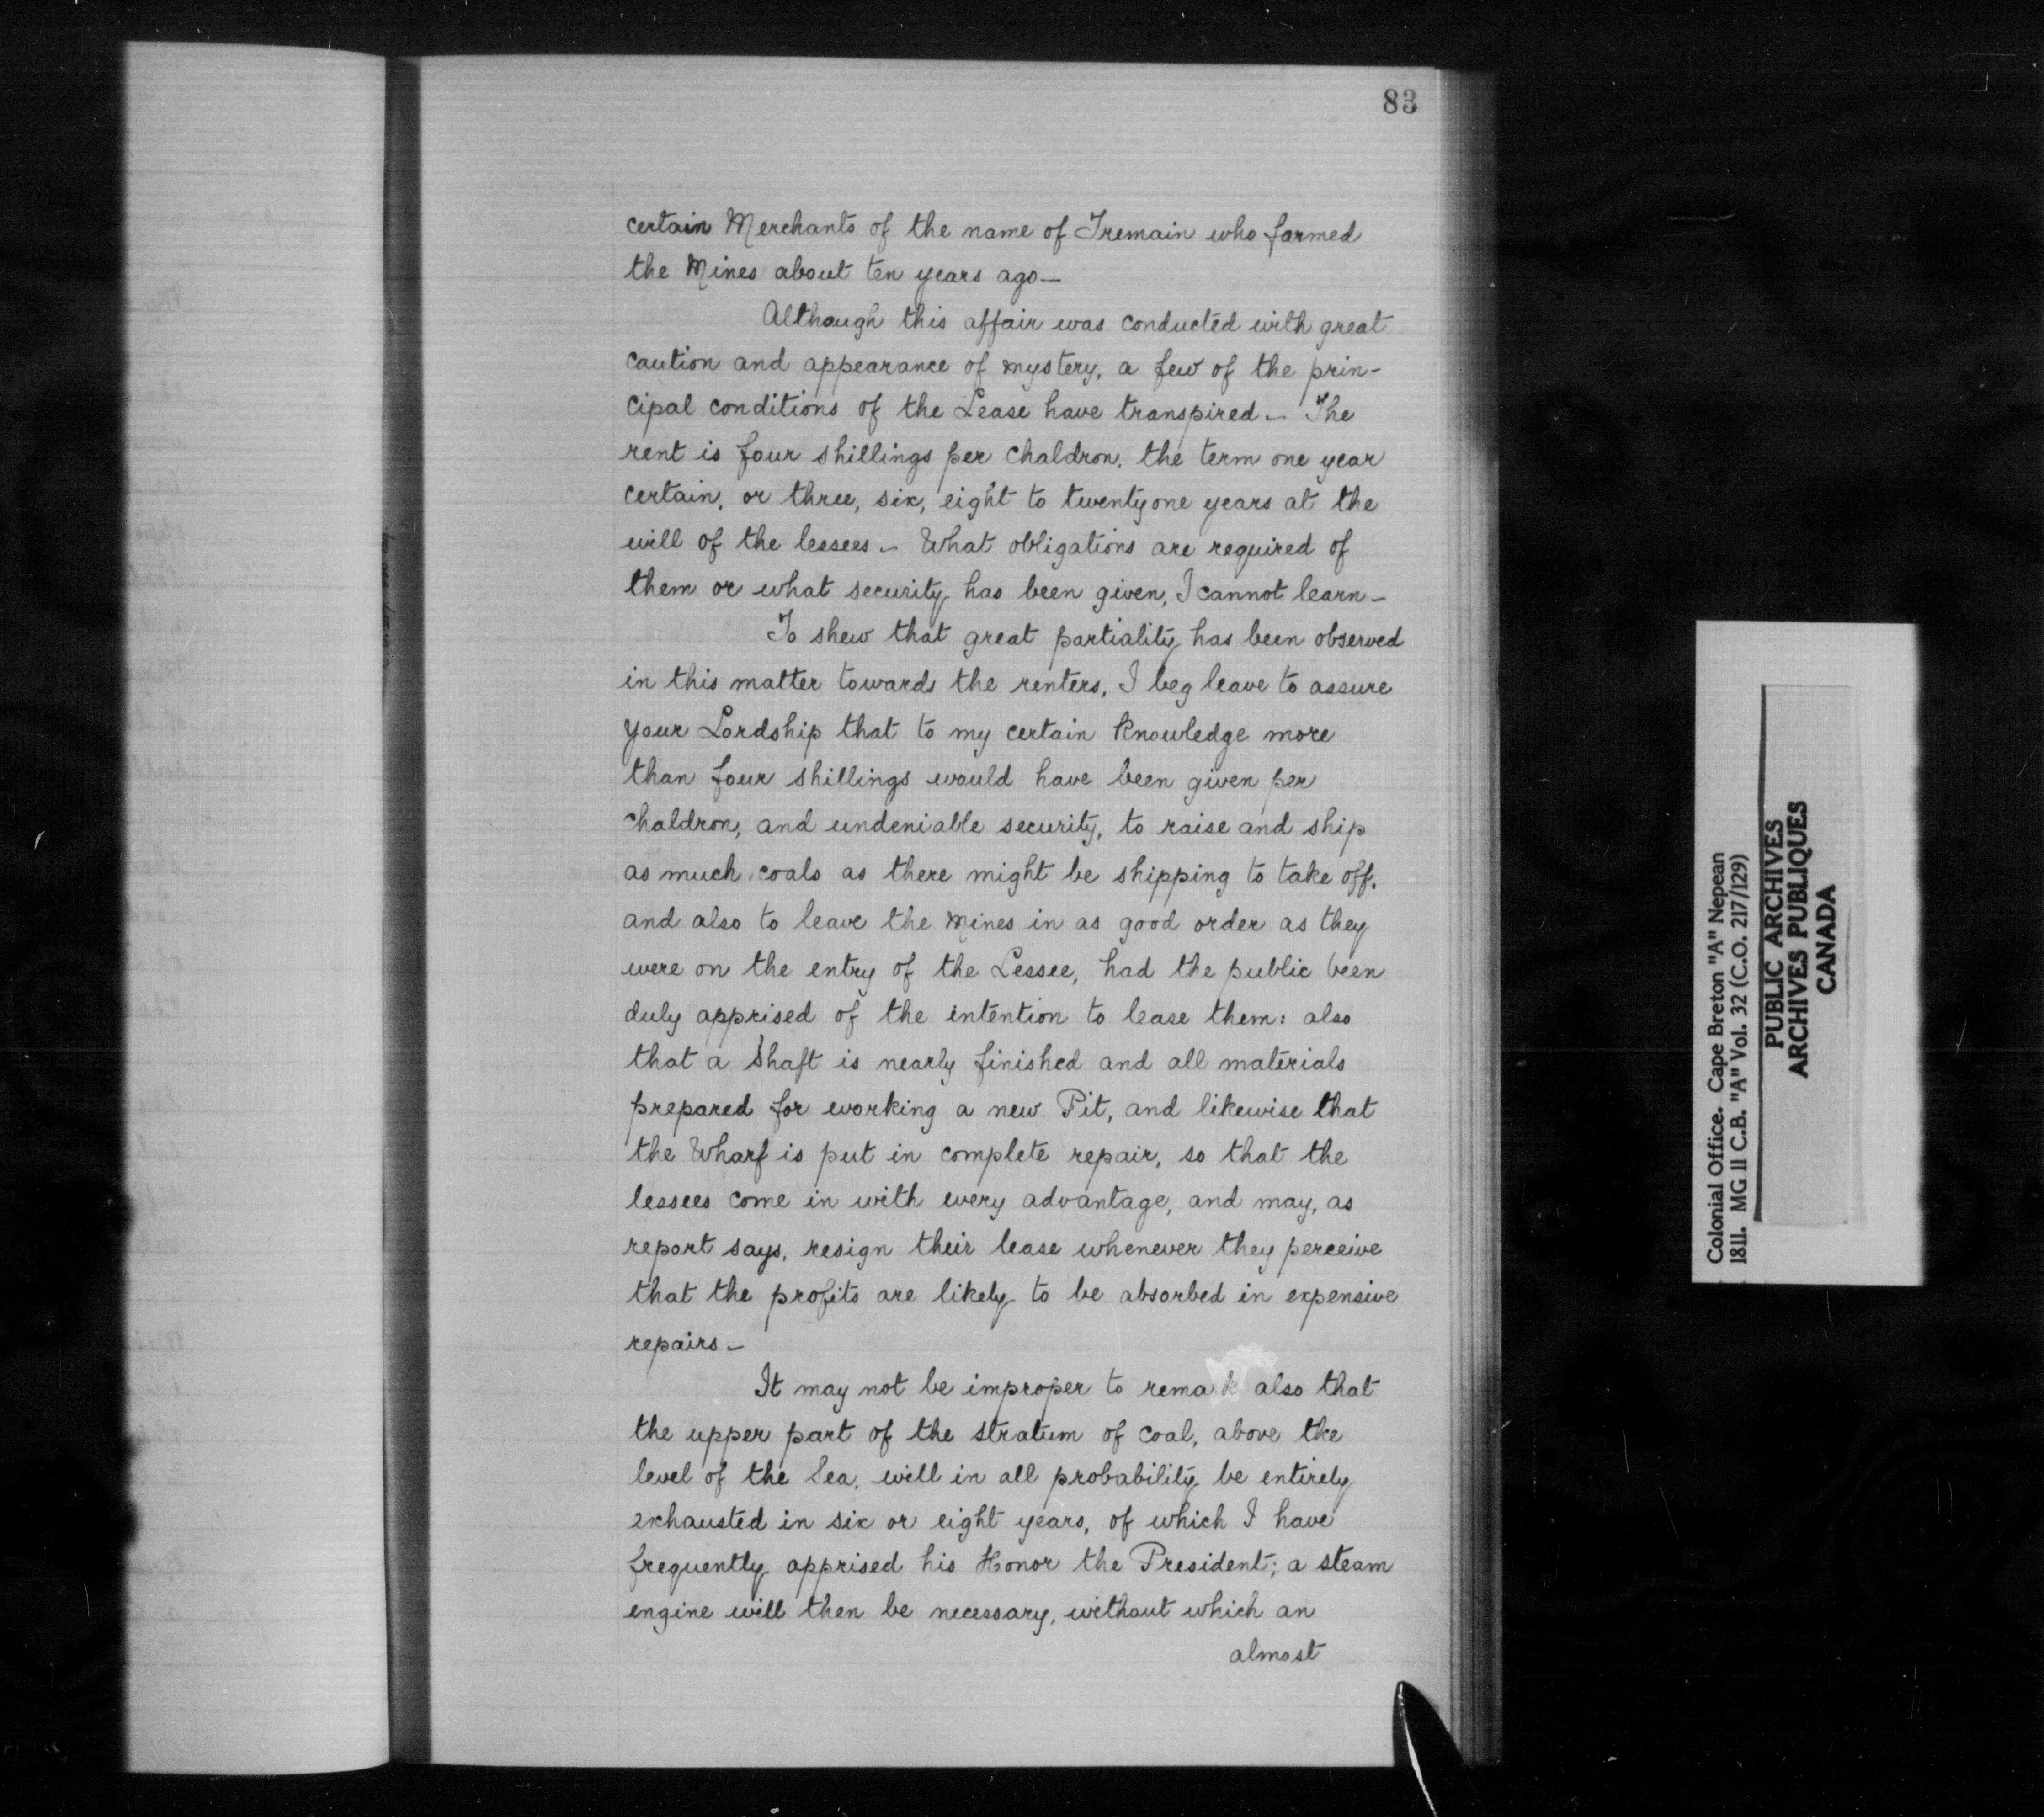 83
certain Merchants of the name of Tremain who farmed
the Mines about ten years ago—
Although this affair was conducted with great
caution and appearance of mystery, a few of the prin-
cipal conditions of the Lease have transpired— The
rent is four shillings per chaldron, the term one year
certain, or three, six, eight to twenty one years at the
will of the lessees— What obligations are required of
them or what security has been given, I cannot learn—
To shew that great partiality has been observed
in this matter towards the renters, I beg leave to assure
your Lordship that to my certain knowledge more
than four shillings would have been given per
chaldron, and undeniable security, to raise and ship
as much coals as there might be shipping to take off,
and also to leave the Mines in as good order as they
were on the entry of the Lessee, had the public been
duly apprised of the intention to lease them: also
that a Shaft is nearly finished and all materials
prepared for working a new Pit, and likewise that
the Wharf is put in complete repair, so that the
lessees come in with every advantage, and may, as
report says, resign their lease whenever they perceive
that the profits are likely to be absorbed in expensive
repairs—
It may not be improper to remark also that
the upper part of the stratum of coal, above the
level of the Sea, will in all probability be entirely
exhausted in six or eight years, of which I have
frequently apprised his Honor the President; a steam
engine will then be necessary, without which an
almost
Colonial Office. Cape Breton "A" Nepean
1811. MG 11 C.B. "A" Vol. 32 (C.O. 217/129)
PUBLIC ARCHIVES
ARCHIVES PUBLIQUES
CANADA